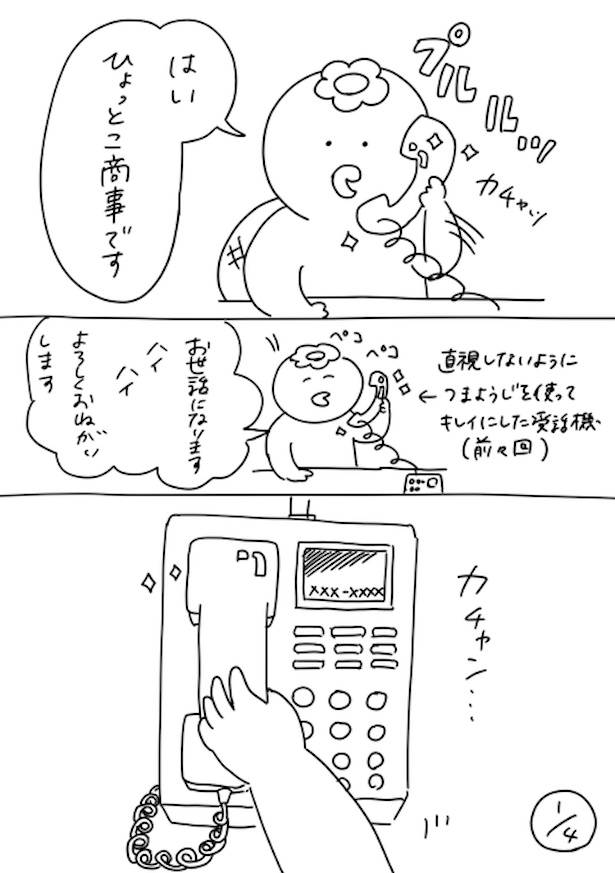 プルルルッ
カチャッ
はい
ひょっとこ商事です
ペコ
ペコ
直視しないように
← つまようじを使って
キレイにした受話機
(前々回)
お世話になります
ハイ
ハイ
よろしくおねがい
します
XXX-XXXX
カチャン…
1/4